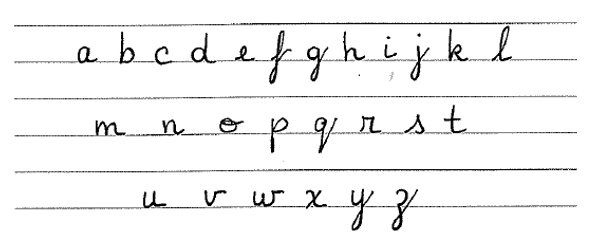 a b c d e f g h i j k l
m n o p q r s t
u v w x y z